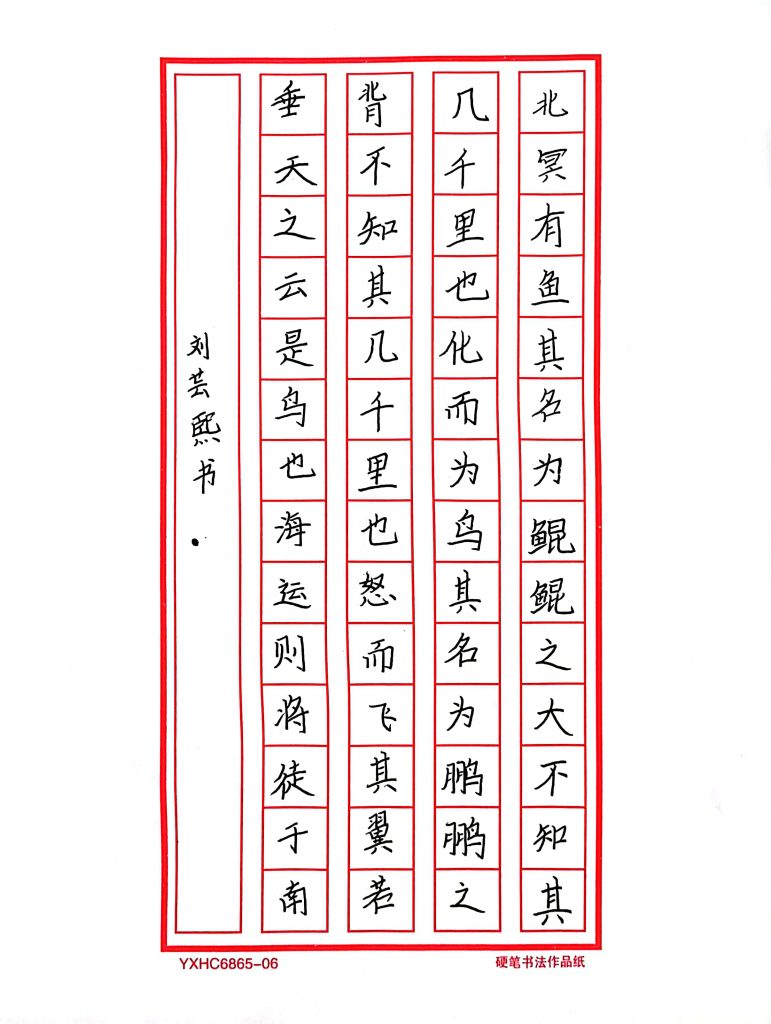 北冥有鱼其名为鲲鲲之大不知其
几千里也化而为鸟其名为鹏鹏之
背不知其几千里也怒而飞其翼若
垂天之云是鸟也海运则将徒于南
刘芸熙书
YXHC6865-06
硬笔书法作品纸